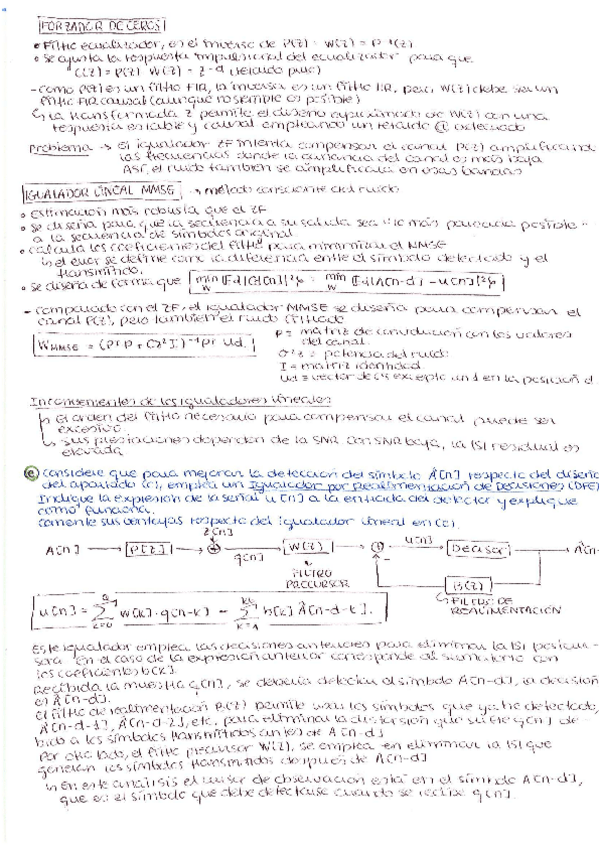 FORZADOR DE CEROS
• Filtro ecualizador, es el inverso de P(z) · W(z) = P⁻¹(z)
• Se ajusta la respuesta impulsional del ecualizador para que
C(z) = P(z) · W(z) = z^-d (retardo puro)
- Como P(z) es un filtro FIR, la inversa es un filtro IIR, pero W(z) debe ser un
filtro FIR causal (aunque no siempre es posible)
↳ la transformada z permite el diseño aproximado de W(z) con una
respuesta estable y causal empleando un retardo d adecuado
Problema → el igualador ZF intenta compensar el canal P(z) amplificando
las frecuencias donde la ganancia del canal es más baja
Así, el ruido también se amplificará en esas bandas
IGUALADOR LINEAL MMSE → método consciente del ruido
• estimación más robusta que el ZF
• se diseña para que la secuencia a su salida sea "lo más parecida posible"
a la secuencia de símbolos original
• calcula los coeficientes del filtro para minimizar el MMSE
↳ el error se define como la diferencia entre el símbolo detectado y el
transmitido.
• se diseña de forma que min_W {|Ed[n]|²} = min_W {|A[n-d] - u[n]|²}
- comparado con el ZF, el igualador MMSE se diseña para compensar el
canal P(z), pero también el ruido filtrado
W_MMSE = (PᵗP + σz² I)⁻¹ Pᵗ ud.
P = matriz de convolución con los valores
del canal.
σ²z = potencia del ruido.
I = matriz identidad.
ud = vector de 0's excepto un 1 en la posición d.
Inconvenientes de los igualadores lineales
↳ El orden del filtro necesario para compensar el canal puede ser
excesivo.
↳ Sus prestaciones dependen de la SNR. Con SNR baja, la ISI residual es
elevada
(e) Considere que para mejorar la detección del símbolo A[n] respecto del diseño
del apartado (c), emplea un Igualador por Realimentación de Decisiones (DFE)
Indique la expresión de la señal u[n] a la entrada del detector y explique
como funciona.
Comente sus ventajas respecto del igualador lineal en (c).
z[n]
A[n] → P(z) → ⊕ → q[n] → W(z) → ⊕ → u[n] → Decisor → Â[n-
FILTRO
PRECURSOR
B(z)
FILTRO DE
REALIMENTACIÓN
u[n] = Σ_{k=0} w[k] · q[n-k] - Σ_{k=1} b[k] Â[n-d-k].
Este igualador emplea las decisiones anteriores para eliminar la ISI poscur-
sora. En el caso de la expresión anterior corresponde al sumatorio con
los coeficientes b[k].
Recibida la muestra q[n], se debería detectar el símbolo A[n-d], la decisión
es Â[n-d].
El filtro de realimentación B(z) permite usar los símbolos que ya he detectado,
Â[n-d-1], Â[n-d-2], etc. para eliminar la distorsión que sufre q[n] de-
bido a los símbolos transmitidos antes de A[n-d]
Por otro lado, el filtro precursor W(z), se emplea en eliminar la ISI que
generan los símbolos transmitidos después de A[n-d]
↳ En este análisis el cursor de observación está en el símbolo A[n-d],
que es el símbolo que debe detectarse cuando se recibe q[n].